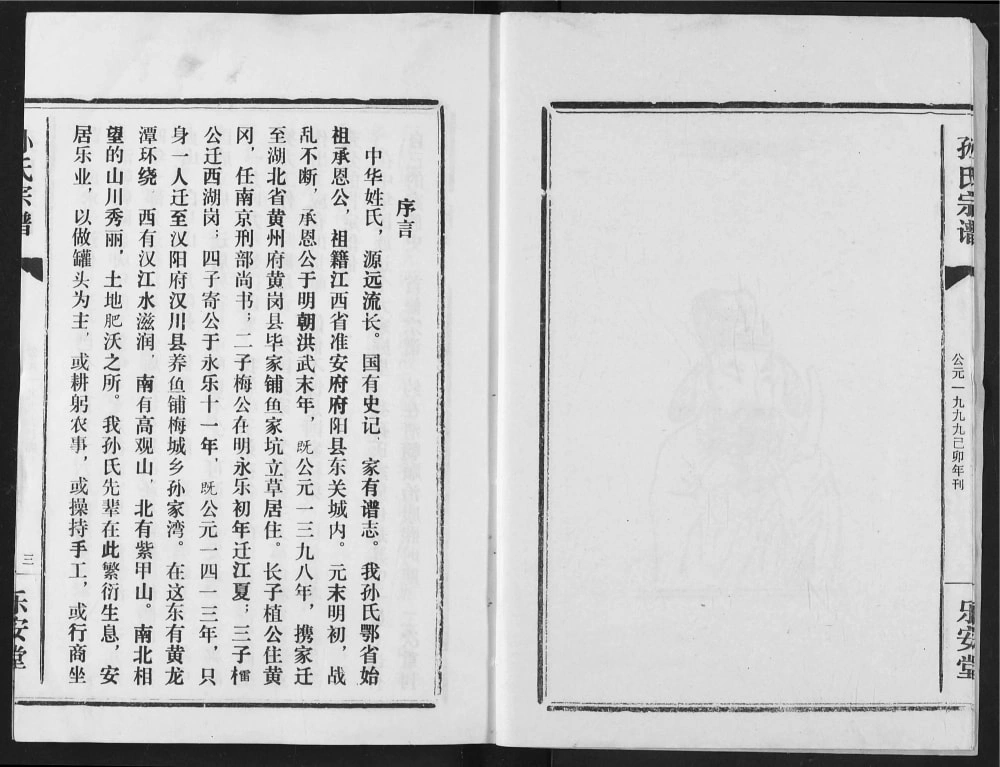 孙氏宗谱
公元一九九九己卯年刊
乐安堂
序言
中华姓氏，源远流长。国有史记，家有谱志。我孙氏鄂省始
祖承恩公，祖籍江西省准安府府阳县东关城内。元末明初，战
乱不断，承恩公于明朝洪武末年，既公元一三九八年，携家迁
至湖北省黄州府黄岗县毕家铺鱼家坑立草居住。长子植公住黄
冈，任南京刑部尚书；二子梅公在明永乐初年迁江夏；三子檑
公迁西湖岗；四子寄公于永乐十一年，既公元一四一三年，只
身一人迁至汉阳府汉川县养鱼铺梅城乡孙家湾。在这东有黄龙
潭环绕，西有汉江水滋润，南有高观山，北有紫甲山。南北相
望的山川秀丽，土地肥沃之所。我孙氏先辈在此繁衍生息，安
居乐业，以做罐头为主，或耕躬农事，或操持手工，或行商坐
孙氏宗谱
三
乐安堂